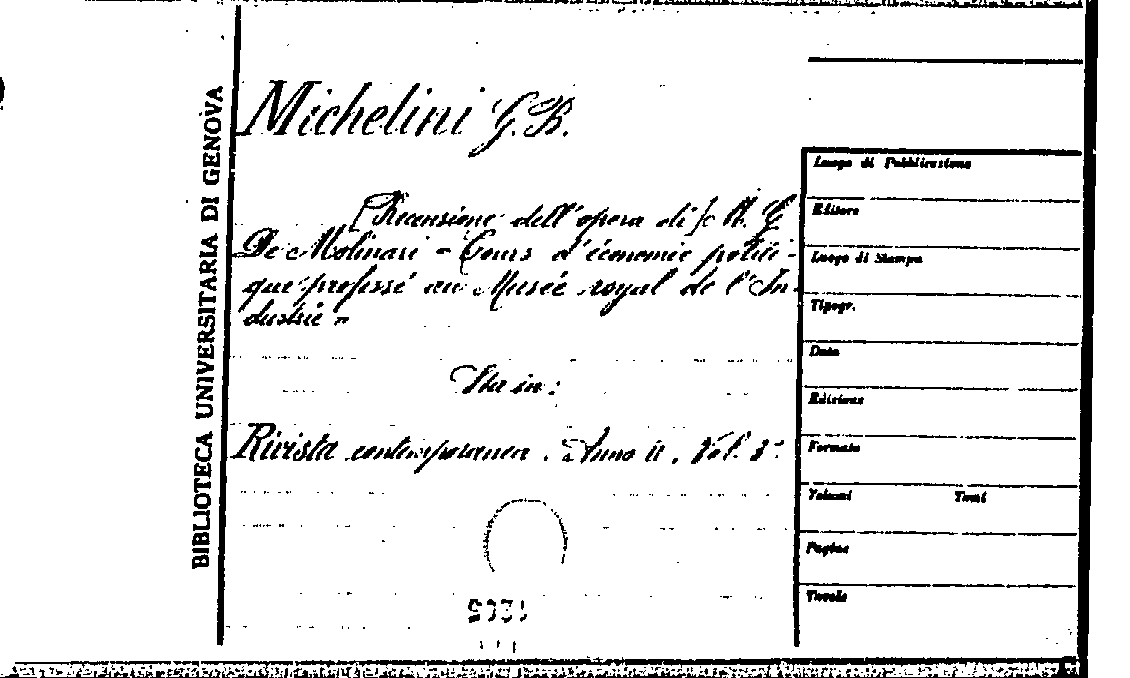 BIBLIOTECA UNIVERSITARIA DI GENOVA
Michelini G. B.
[Recensione dell'opera di]
De Molinari = Cours d'économie politi-
que professé au Musée royal de l'In-
dustrie =
Sta in:
Rivista contemporanea. Anno II. Vol. 3°
Luogo di Pubblicazione
Editore
Luogo di Stampa
Tipogr.
Data
Edizione
Formato
Volumi Tomi
Pagine
Tavole